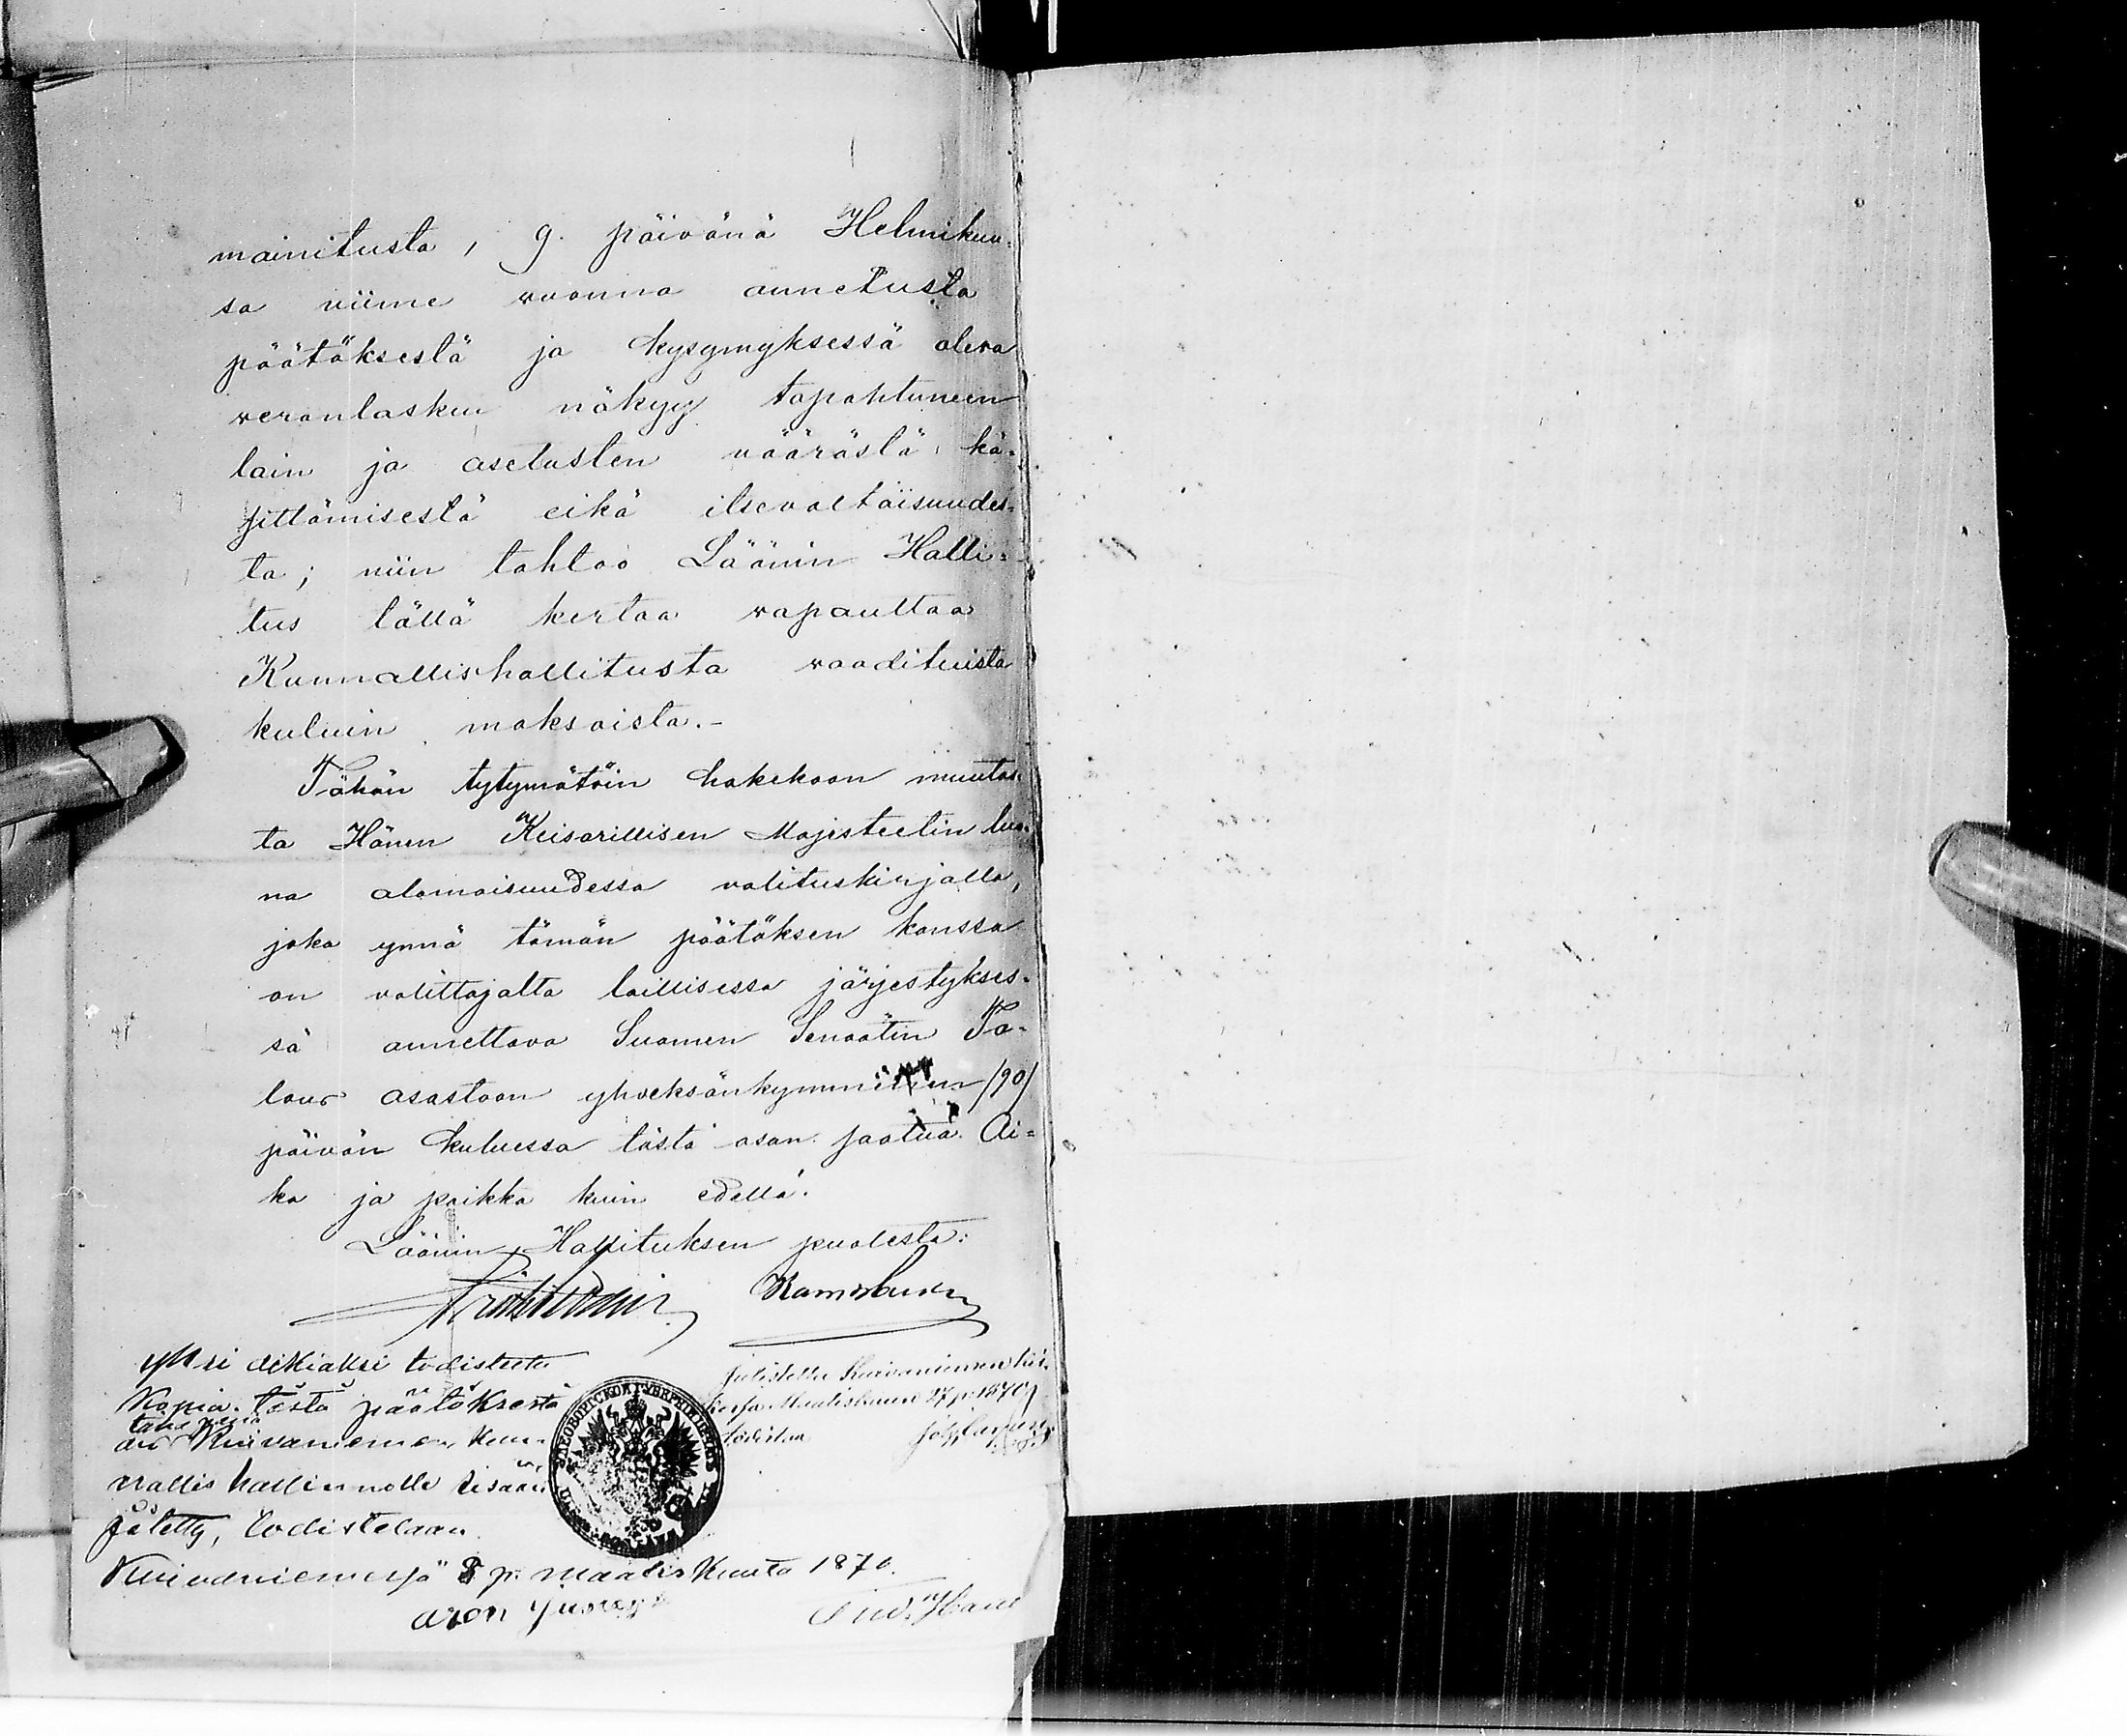 mainitusta, 9. päivänä Helmikuu-
sa viime vuonna annetusta
päätöksestä ja kysymyksessä oleva
veronlasku näkyy tapahtuneen
lain ja asetusten väärästä kä-
sittämisestä eikä itsevaltaisuudes-
ta; niin tahtoo Läänin Halli-
tus tällä kertaa vapauttaa
Kunnallishallitusta vaadituista
kuluin maksoista.-
Tähän tytymätöin hakekoon muutos-
ta Hänen Keisarillisen Majesteetin luo-
na alamaisuudessa valituskirjalla,
joka ynnä tämän päätöksen kanssa
on valittajalta laillisessa järjestykses-
sä annettava Suomen Senaatin Ta-
lous asastoon yhdeksänkymmenen /90/
päivän kuluessa tästä osan saatua. Ai-
ka ja paikka kuin edellä.
Läänin Hallituksen puolesta:
yksi oikiaksi todistettu
Kopia tästä päätöksestä
tänäpänä
on Kuivaniemen kun-
nallis hallinnolle sisään
jätetty, todistetaan
Kuivaniemessä 8 p. maaliskuuta 1870.
Julistettu Kuivaniemen kir-
kossa Maaliskuun 27 p. 1870
todistaa